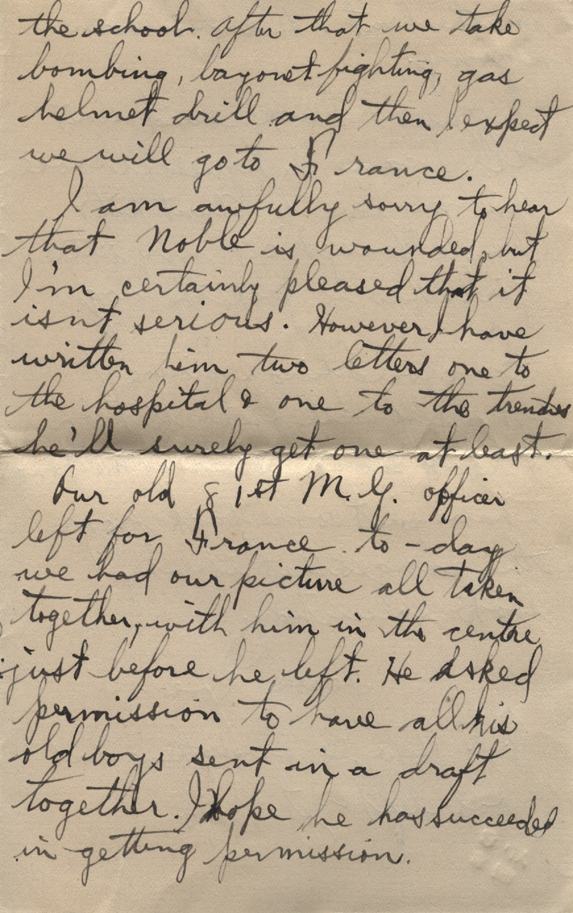 the school. After that we take
bombing, bayonet fighting, gas
helmet drill and then I expect
we will go to France.
I am awfully sorry to hear
that Noble is wounded, but
I'm certainly pleased that it
isnt serious. However I have
written him two letters one to
the hospital & one to the trenches
he'll surely get one at least.
Our old 81st M.G. officer
left for France to-day
we had our picture all taken
together, with him in the centre
just before he left. He asked
permission to have all his
old boys sent in a draft
together. I hope he has succeeded
in getting permission.